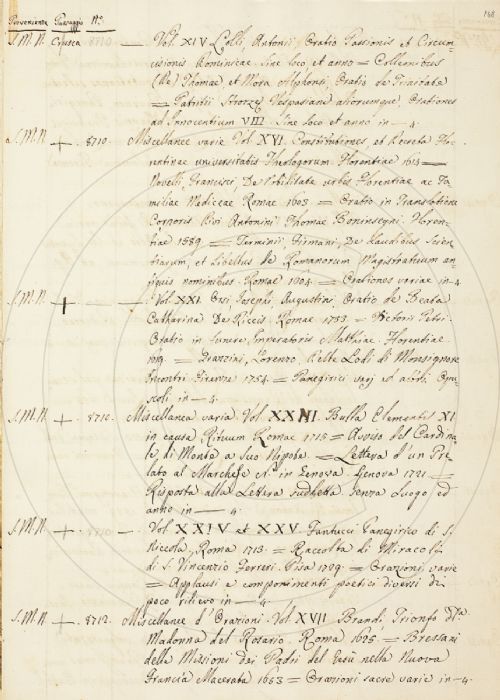 Provenienza Passaggio N.º
168
S.M.N. Crusca 8710 — Vol. XIV Lolli, Antonii, Oratio Passionis et Circum-
cisionis Dominicae. Sine loco et anno = Collenutius
(De) Thomae et Mora Alphonsi, Oratio de Trinitate
= Patritii Strozzi Vespasiani aliorumque, Orationes
ad Innocentium VIII. Sine Loco et anno in — 4.
S.M.N. + 8710. Miscellanee varie Vol. XVI. Constitutiones, et Decreta Flo-
rentinae universitatis Theologorum. Florentiae 1614 —
Novelli, Francisci, De Nobilitate urbis Florentiae ac Fa-
miliae Mediceae Romae 1603 = Oratio in Translatione
Corporis Divi Antonini Thomae Boninsegni. Floren-
tiae 1589 = Terminii, Firmani, De Laudibus Scien-
tiarum, et Libellus de Romanorum Magistratuum an-
tiquis nominibus. Romae 1604 = Orationes variae in-4
S.M.N. + — Vol. XXI. Orsi Joseph, Augustini, Oratio de Beata
Catharina De Riccis. Romae 1733 = Victorii Petri
Oratio in funere Imperatoris Matthiae. Florentiae
1619. = Grazzini, Lorenzo, Delle Lodi di Monsignore
Incontri Firenze 1754 = Panegirici varj ed altri Opu-
scoli in — 4.
S.M.N. + 8710. Miscellanea varia Vol. XXIII. Bulla Clementis XI
in causa Rituum Romae 1715 = Avviso del Cardina-
le di Monte a suo Nepote = Lettera d'un Pre-
lato al Marchese N. in Genova. Genova 1721 =
Risposta alla Lettera suddetta. Senza Luogo, ed
anno in — 4.
S.M.N. + 8710 — Vol. XXIV et XXV. Fantucci Panegirico di S.
Niccola, Roma 1713. = Raccolta di Miracoli
di S. Vincenzio Ferreri. Pisa 1729 = Orazioni, varie
= Applausi e componimenti poetici diversi di
poco rilievo in — 4.
S.M.N. + 8712. Miscellanee d'Orazioni. Vol. XVII Brandi, Trionfo dla
Madonna del Rosario. Roma 1695 = Bressani
delle Missioni dai Padri del Gesù nella Nuova
Francia Macerata 1653 = Orazioni sacre varie in — 4.